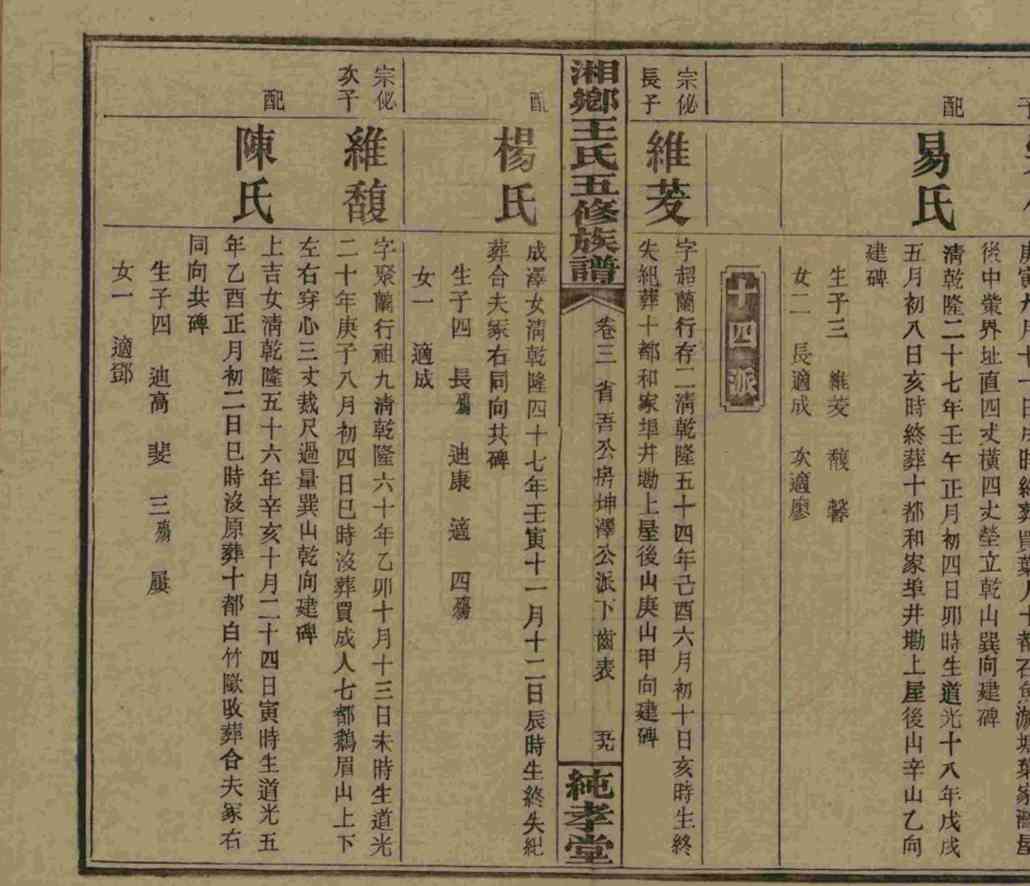 後中縈界址直四丈橫四丈塋立乾山巽向建碑
配
易氏
清乾隆二十七年壬午正月初四日卯時生道光十八年戊戌
五月初八日亥時終葬十都和家埠井墈上屋後山辛山乙向
建碑
生子三 維茭 馥 馨
女二 長適成 次適廖
十四派
宗佖
長子
維茭
字韶蘭行存二清乾隆五十四年己酉六月初十日亥時生終
失紀葬十都和家埠井墈上屋後山庚山甲向建碑
湘鄉王氏五修族譜
卷三 省吾公房坤澤公派下齒表
純孝堂
配
楊氏
成澤女清乾隆四十七年壬寅十一月十二日辰時生終失紀
葬合夫冢右同向共碑
生子四 長殤 迪康 適 四殤
女一 適成
宗佖
次子
維馥
字聚蘭行祖九清乾隆六十年乙卯十月十三日未時生道光
二十年庚子八月初四日巳時沒葬買成人七都鵝眉山上下
左右穿心三丈裁尺過量巽山乾向建碑
配
陳氏
上吉女清乾隆五十六年辛亥十月二十四日寅時生道光五
年乙酉正月初二日巳時沒原葬十都白竹歐改葬合夫冢右
同向共碑
生子四 迪高 斐 三殤 屢
女一 適鄧